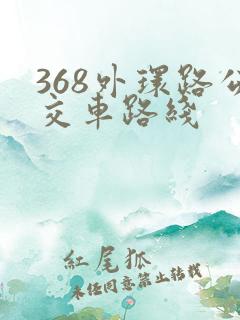 368外環路公
交車路綫
紅尾狐
未经同意禁止转载